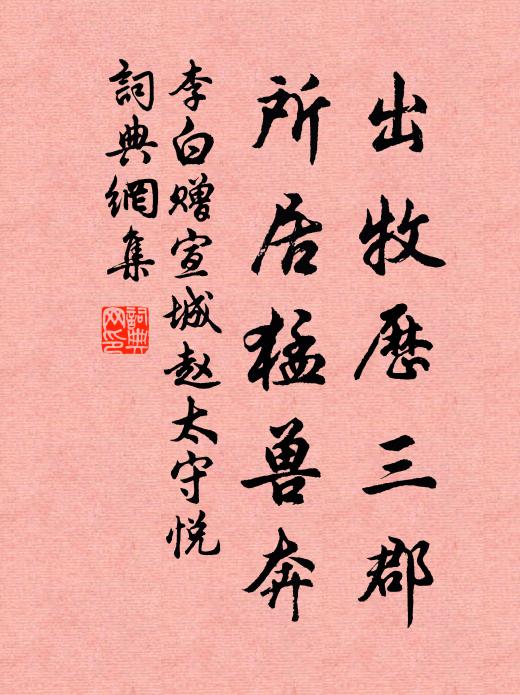 出牧歷三郡
所居猛兽奔
李白赠宣城赵太守悦
詞典網集
詞典网印